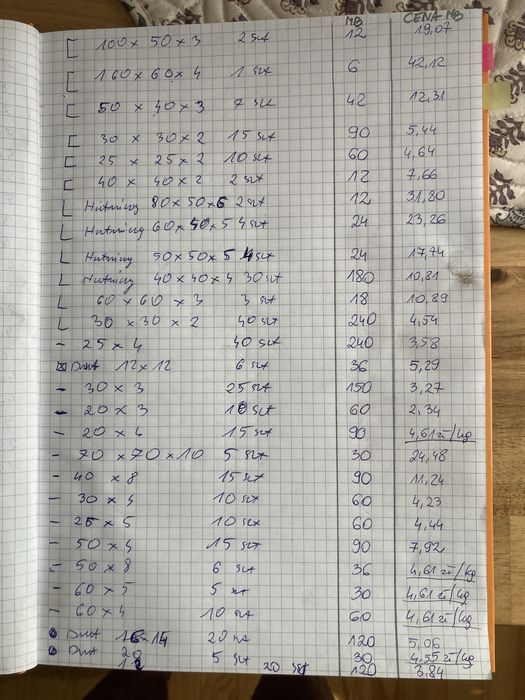 MB CENA MB
[ 100 x 50 x 3 2 szt 12 19,07
[ 160 x 60 x 4 1 szt 6 42,12
[ 50 x 40 x 3 7 szt 42 12,31
[ 30 x 30 x 2 15 szt 90 5,44
[ 25 x 25 x 2 10 szt 60 4,64
[ 40 x 40 x 2 2 szt 12 7,66
L Hutniczy 80 x 50 x 6 2 szt 12 31,80
L Hutniczy 60 x 40 x 5 4 szt 24 23,26
L Hutniczy 50 x 50 x 5 4 szt 24 17,74
L Hutniczy 40 x 40 x 4 30 szt 180 10,81
L 60 x 60 x 3 3 szt 18 10,89
L 30 x 30 x 2 40 szt 240 4,54
- 25 x 4 40 szt 240 3,58
Drut 12 x 12 6 szt 36 5,29
- 30 x 3 25 szt 150 3,27
- 20 x 3 10 szt 60 2,34
- 20 x 4 15 szt 90 4,61 zł/kg
- 70 x 70 x 10 5 szt 30 24,48
- 40 x 8 15 szt 90 11,24
- 30 x 4 10 szt 60 4,23
- 25 x 5 10 szt 60 4,44
- 50 x 4 15 szt 90 7,92
- 50 x 8 6 szt 36 4,61 zł/kg
- 60 x 5 5 szt 30 4,61 zł/kg
- 60 x 4 10 szt 60 4,61 zł/kg
Drut 14 20 szt 120 5,06
Drut 20 5 szt 30 4,55 zł/kg
12 20 szt 120 3,84